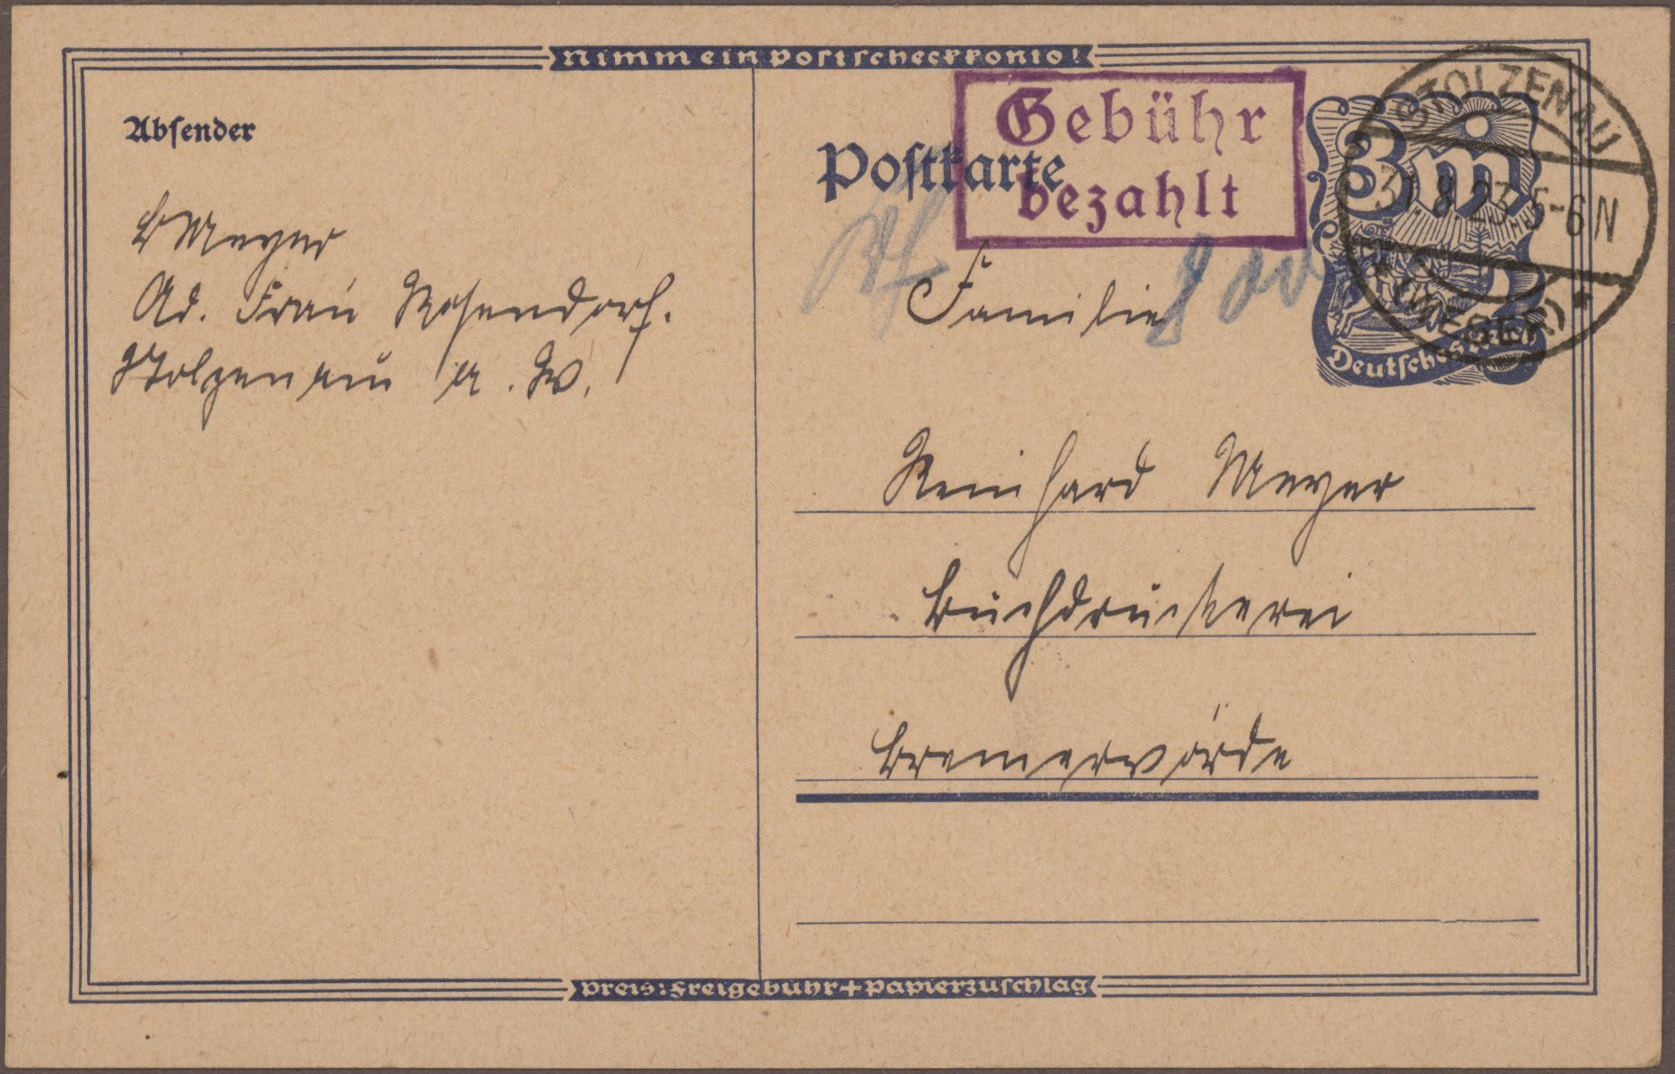 Nimm ein Postscheckkonto!
Absender
Postkarte
Gebühr
bezahlt
3 m
STOLZENAU
31.8.23 5-6 N
* (WESER) *
Deutsches Reich
BMeyer
Ad. Frau Rosendorf.
Stolzenau a. W.
Familie
Reinhard Meyer
Buchdruckerei
Bremervörde
Preis: Freigebühr + Papierzuschlag